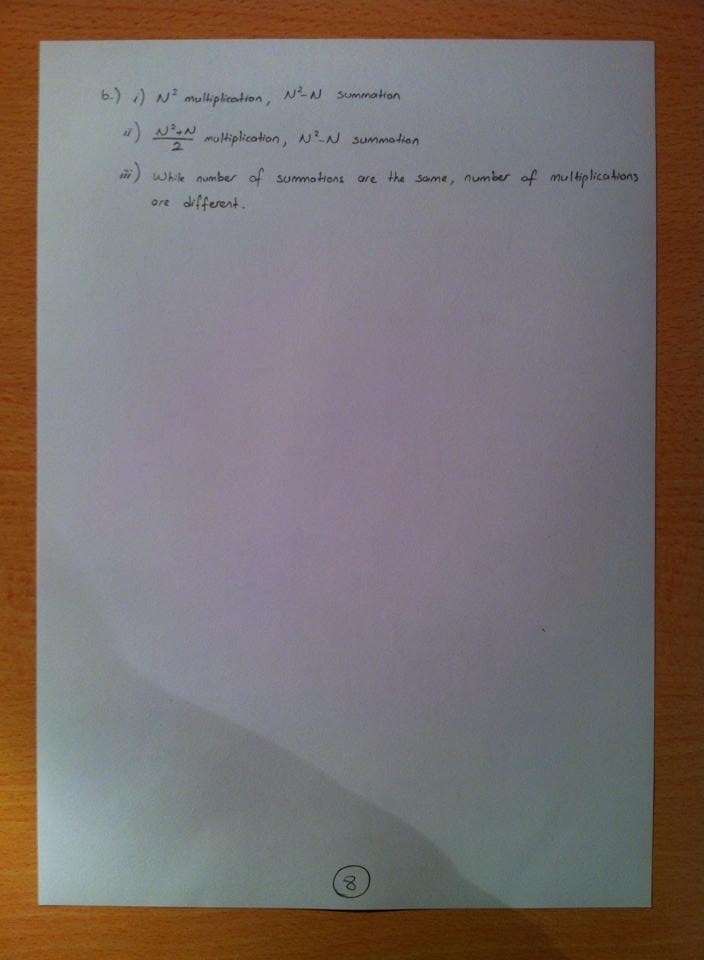 b.) i) N² multiplication, N²-N summation
ii) N²+N/2 multiplication, N²-N summation
iii) While number of summations are the same, number of multiplications
are different.
8